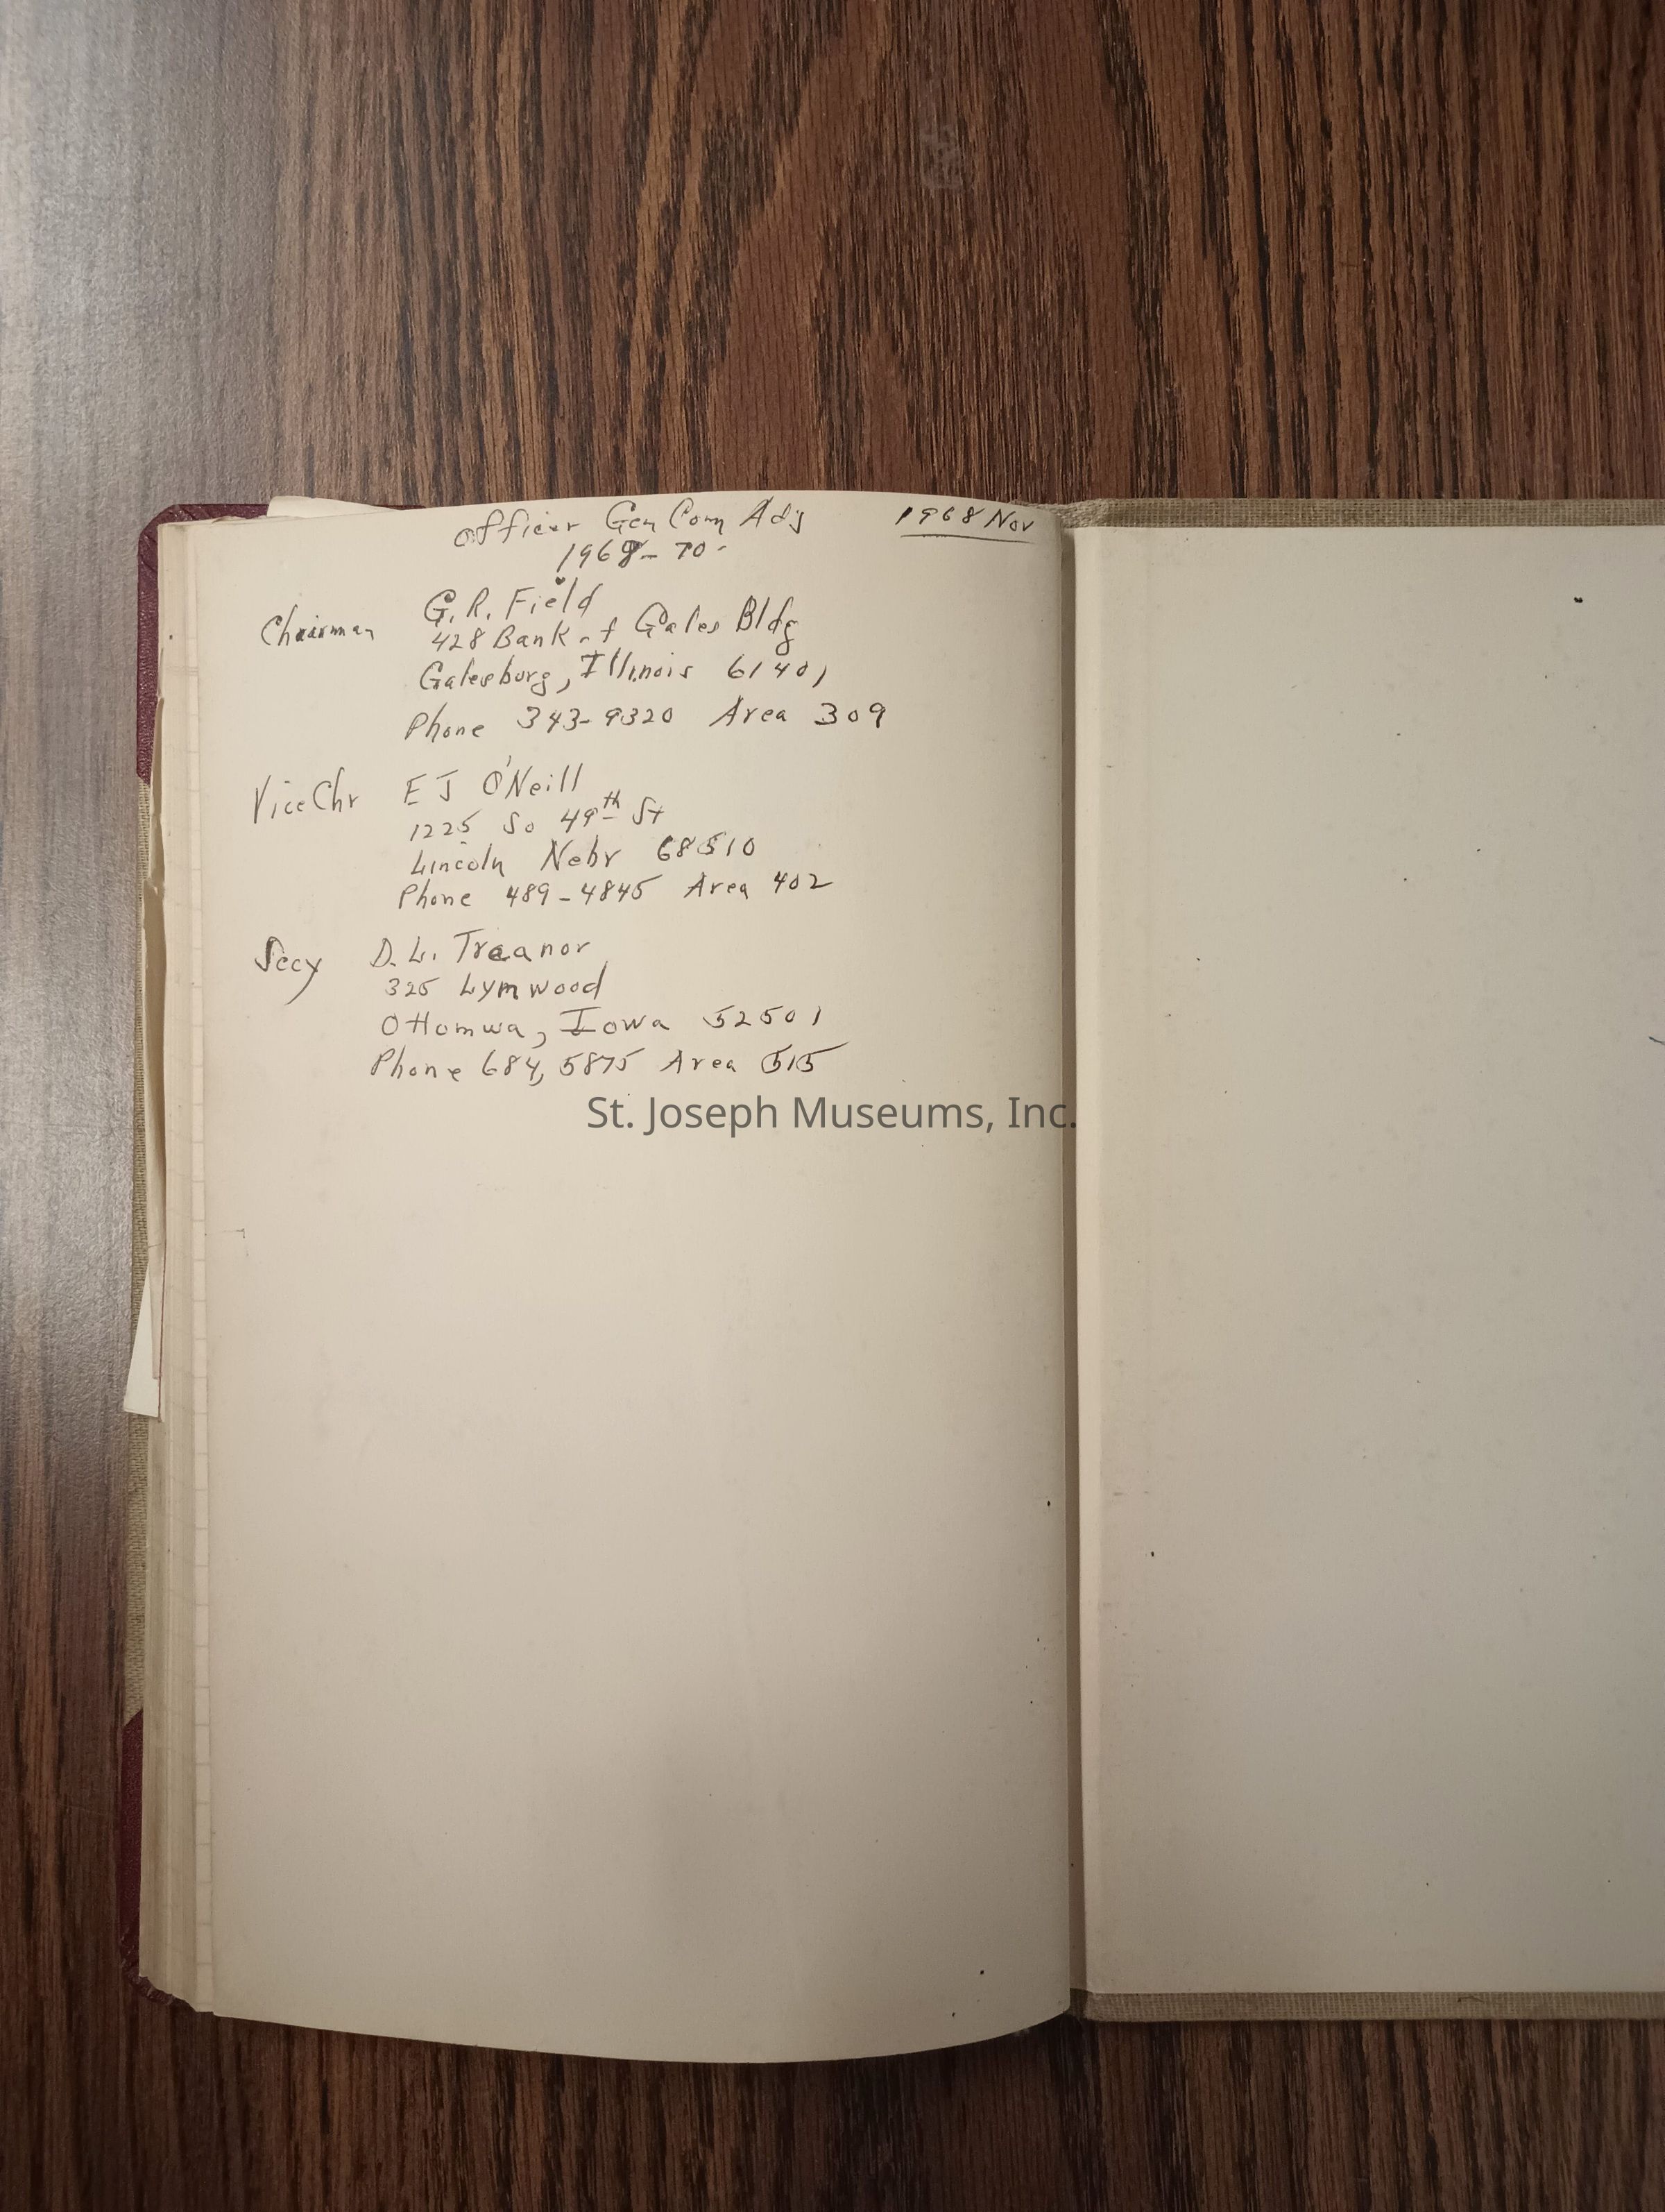 Officer Gen Com Adj 1968 Nov
1968-70-
Chairman G. R. Field
428 Bank of Gales Bldg
Galesburg, Illinois 61401
Phone 343-9320 Area 309
Vice Chr E J O'Neill
1225 So 49th St
Lincoln Nebr 68510
Phone 489-4845 Area 402
Secy D. L. Treanor
325 Lymwood
Ottomwa, Iowa 52501
Phone 684, 5875 Area 515
St. Joseph Museums, Inc.